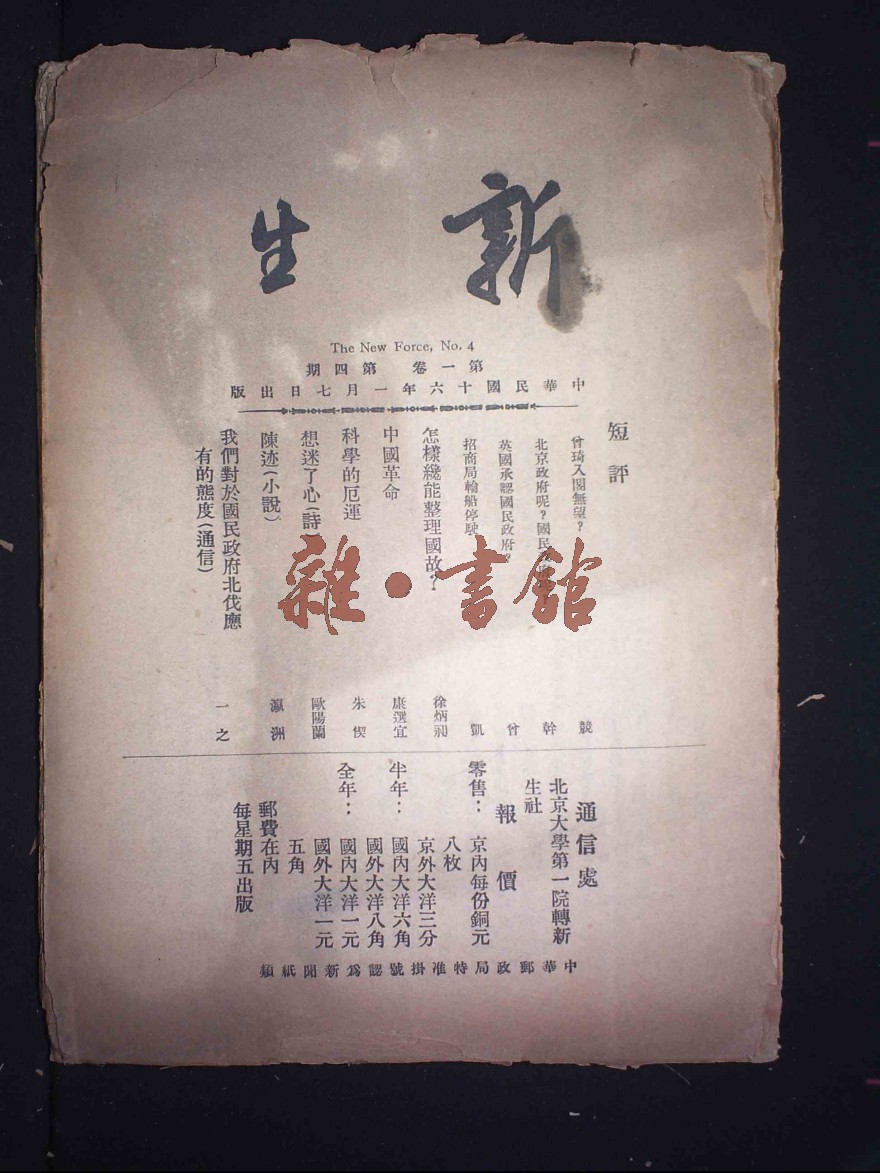 新生
The New Force, No. 4
第一卷 第四期
中華民國十六年一月七日出版
短評
曾琦入閣無望？ 競
北京政府呢？國民 幹
英國承認國民政府？ 曾
招商局輪船停駛 凱
怎樣纔能整理國故？ 徐炳昶
中國革命 康選宜
科學的厄運 朱偰
想迷了心（詩） 歐陽蘭
陳迹（小說） 瀛洲
我們對於國民政府北伐應
有的態度（通信） 一之
通信處
北京大學第一院轉新
生社
報價
零售： 京內每份銅元
八枚
京外大洋三分
半年： 國內大洋六角
國外大洋八角
全年： 國內大洋一元
國外大洋一元
五角
郵費在內
每星期五出版
中華郵政局特准掛號認為新聞紙類
雜·書館